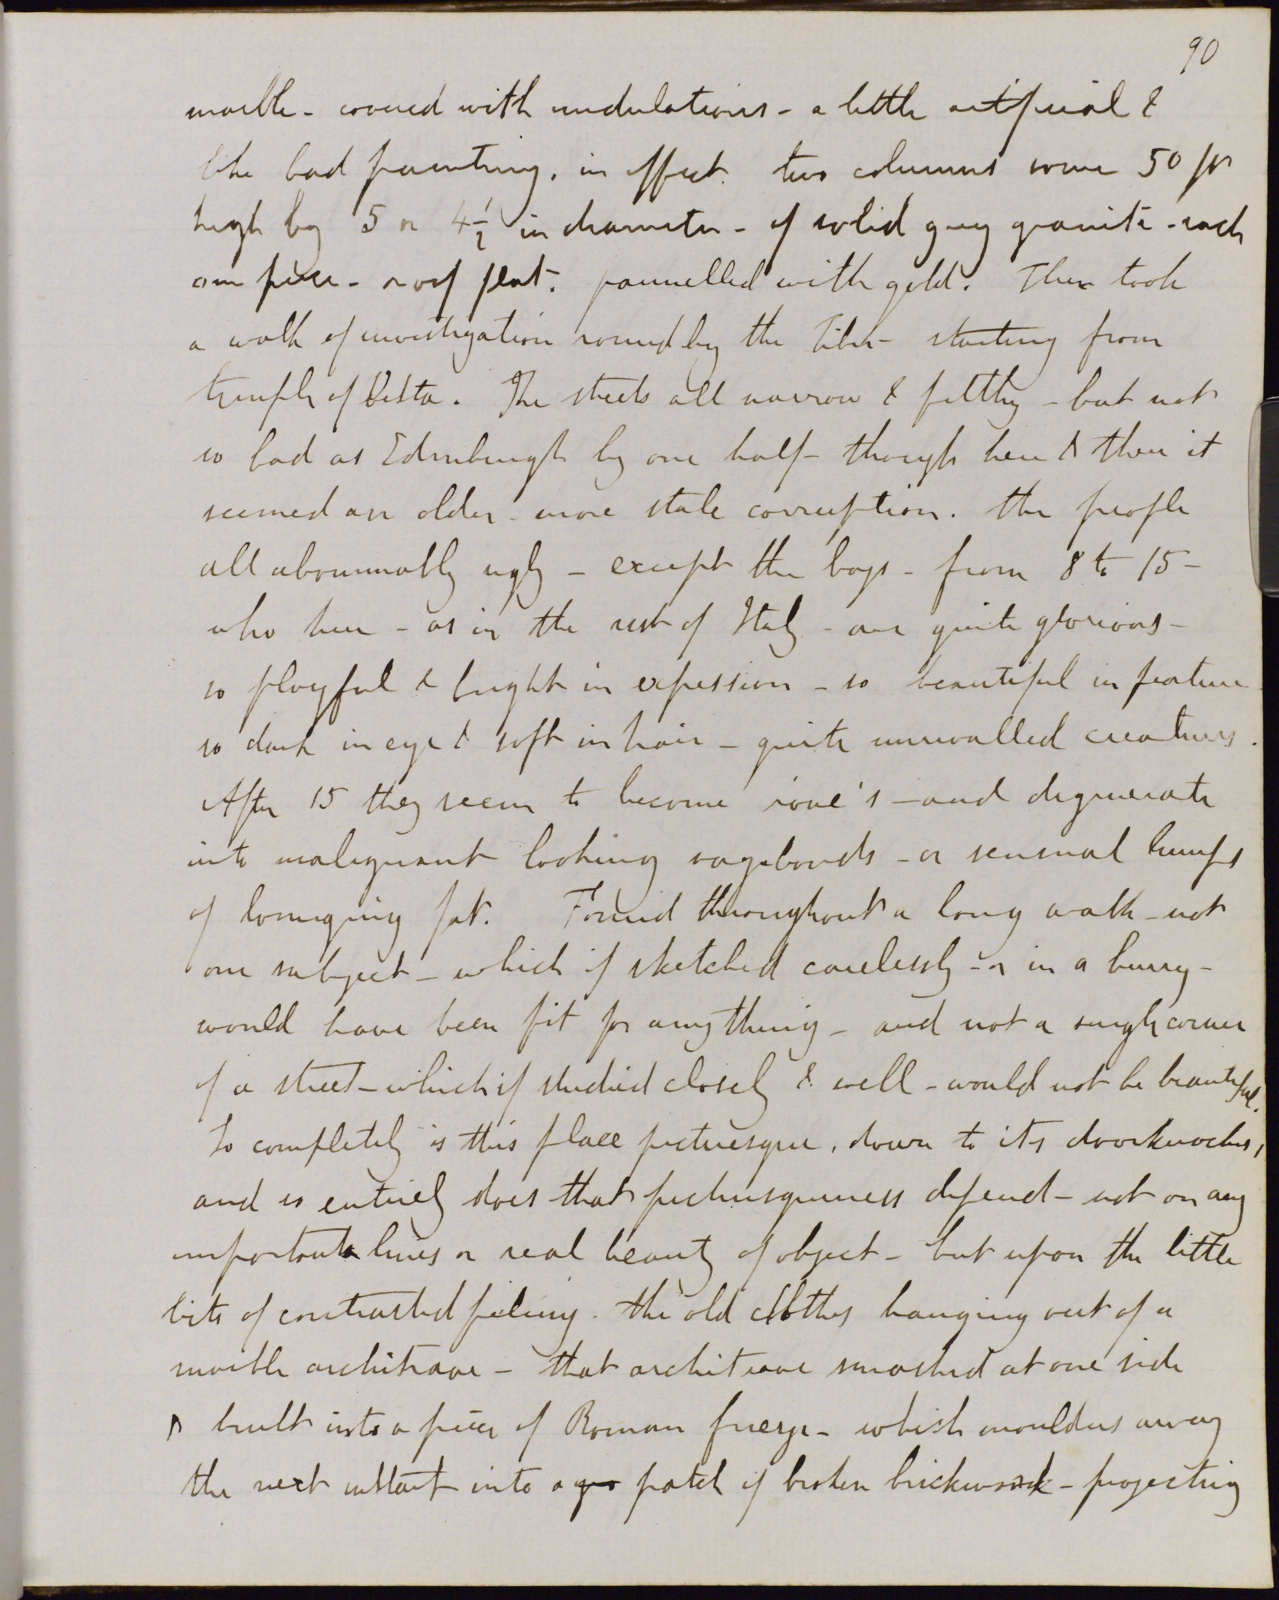 90
marble - covered with undulations - a little artificial &
like bad painting, in effect. two columns some 50 ft
high by 5 or 4½ in diameter - of solid grey granite - each
one piece - roof flat. pannelled with gold. Then took
a walk of investigation round by the Tiber - starting from
temple of Vesta. The streets all narrow & filthy - but not
so bad as Edinburgh by one half - though here & there it
seemed an older - more stale corruption. the people
all abominably ugly - except the boys - from 8 to 15 -
who here - as in the rest of Italy - are quite glorious -
so playful & bright in expression - so beautiful in feature
so dark in eye & soft in hair - quite unrivalled creatures.
After 15 they seem to become roué's - and degenerate
into malignant looking vagabonds - or sensual lumps
of lounging fat. Found throughout a long walk - not
one subject - which if sketched carelessly - or in a hurry -
would have been fit for anything - and not a single corner
of a street - which if studied closely & well - would not be beautiful.
So completely is this place picturesque, down to its doorknockers,
and so entirely does that picturesqueness depend - not on any
important lines or real beauty of object - but upon the little
bits of contrasted feeling - the old clothes hanging out of a
marble architrave - that architrave smashed at one side
& built into a piece of Roman frieze - which moulders away
the next instant into a patch of broken brickwork - projecting